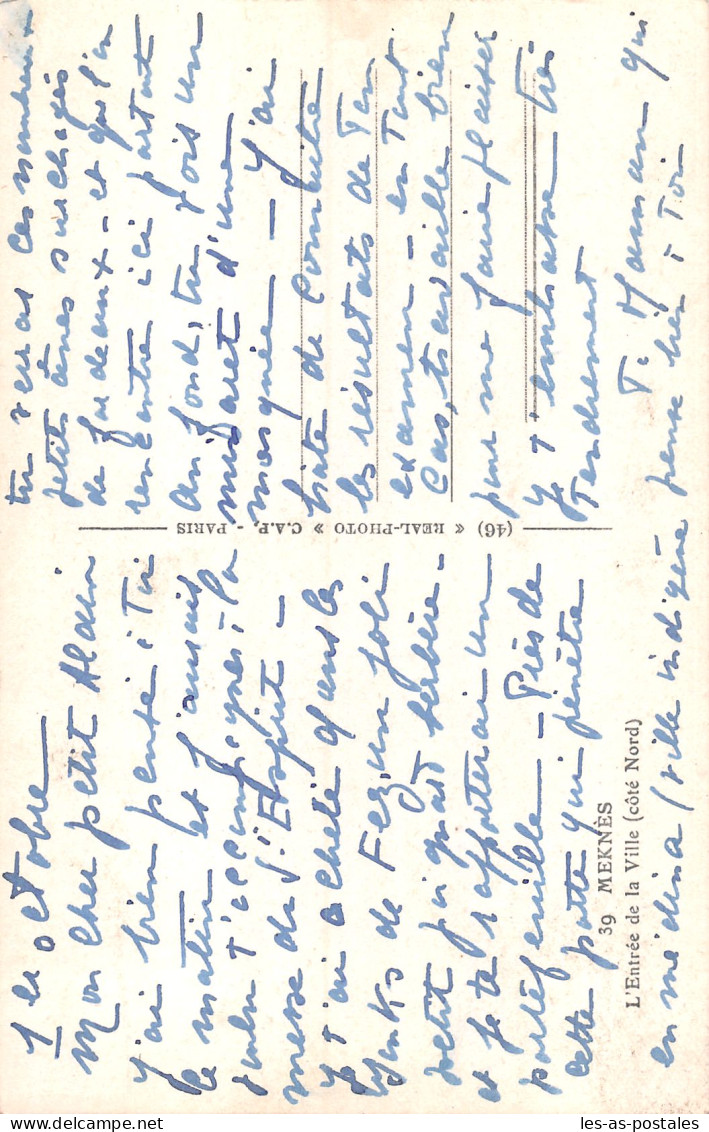 1er octobre
Mon cher petit Alain
J'ai bien pensé à Toi
ce matin et j'aurais
voulu t'accompagner à la
messe du St Esprit -
Je t'ai acheté dans les
souks de Fez, un joli
petit poignard berbère -
et je te rapporterai un
portefeuille - Près de
cette porte qui pénètre
en médina (ville indigène
tu verras ces nombreux
petits ânes surchargés
de fardeaux - et que l'on
rencontre ici partout
Au fond, tu vois un
minaret d'une
mosquée - J'ai
hâte de connaître
les résultats de Ton
examen - en Tout
cas, travaille bien
pour me faire plaisir
Je t'embrasse très
Tendrement
Ta Maman qui
pense bien à Toi
39 MEKNÈS
L'Entrée de la Ville (côté Nord)
(46) « REAL-PHOTO » C.A.P. - PARIS
les-as-postales